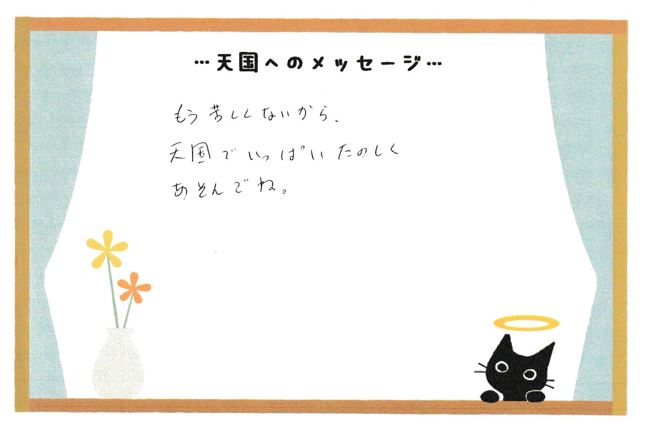 …天国へのメッセージ…
もう苦しくないから、
天国でいっぱいたのしく
あそんでね。